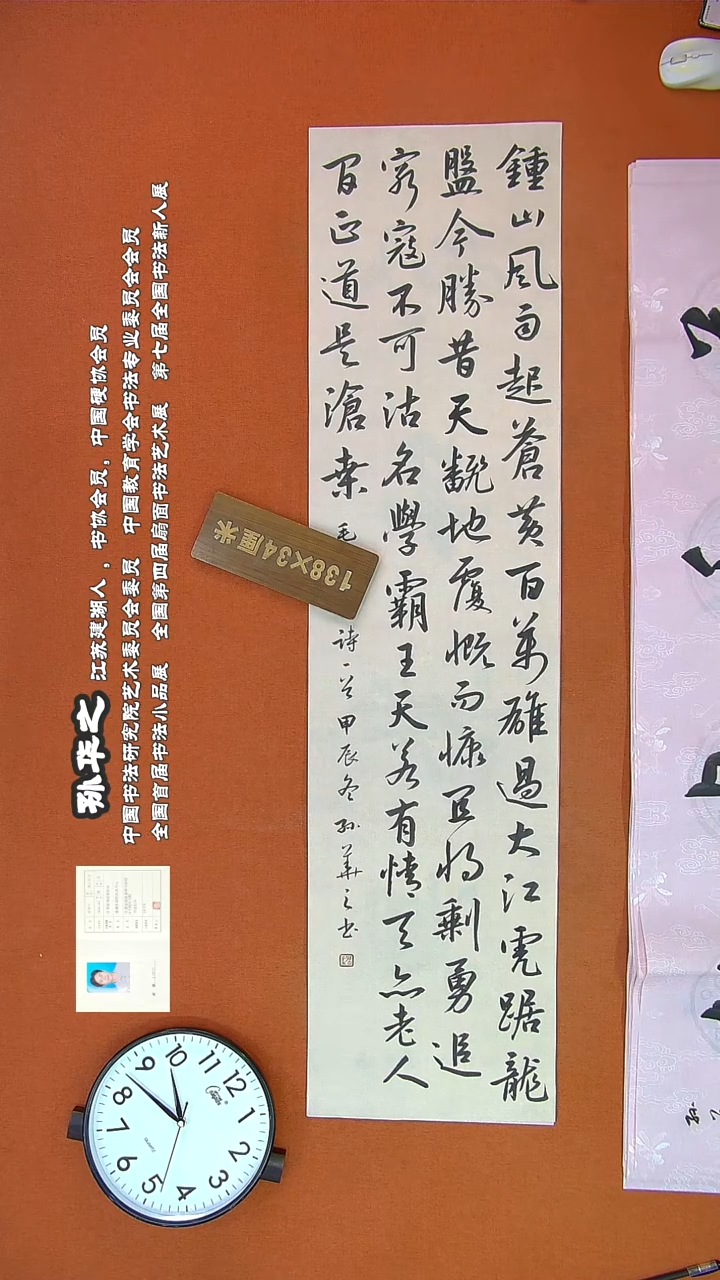 鍾山风雨起蒼黄百萬雄過大江虎踞龍
盤今勝昔天翻地覆慨而慷宜将剩勇追
窮寇不可沽名學霸王天若有情天亦老人
间正道是滄桑
毛
詩一首甲辰冬孙華之书
138×34厘米
孙华之 江苏建湖人，书协会员，中国硬协会员
中国书法研究院艺术委员会委员 中国教育学会书法专业委员会会员
全国首届书法小品展 全国第四届扇面书法艺术展 第七届全国书法新人展
12
1
2
3
4
5
6
7
8
9
10
11